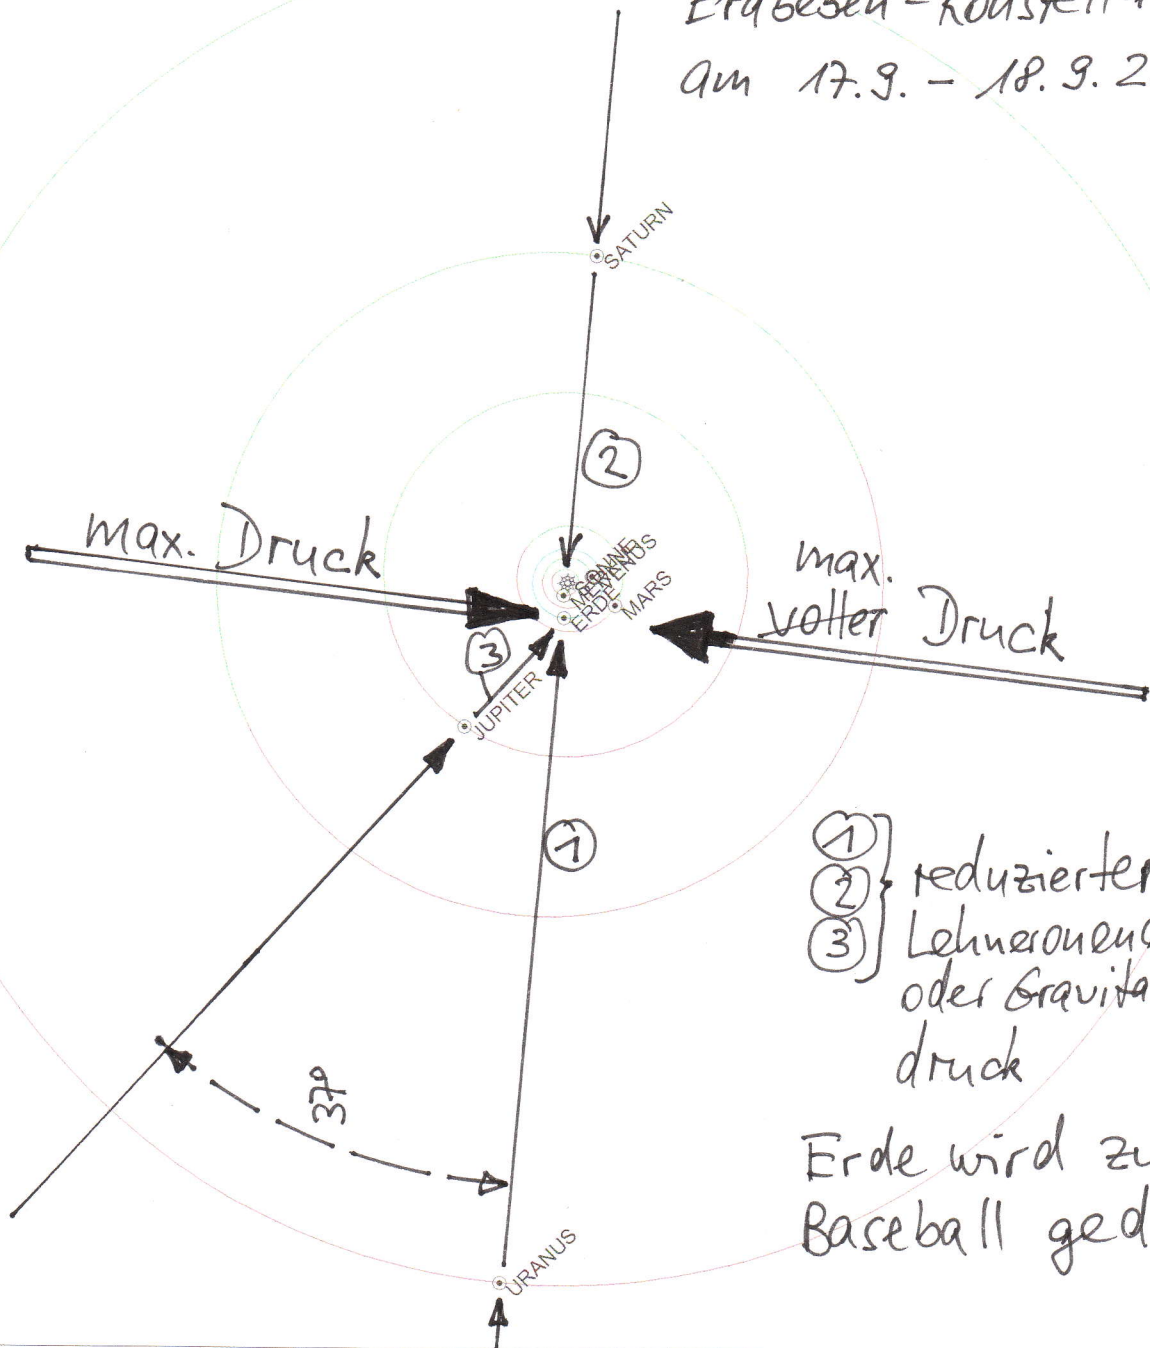 Erdbeben-Konstell
am 17.9. - 18.9. 2
SATURN
2
max. Druck
SONNE
VENUS
ERDE
MARS
max.
voller Druck
3
JUPITER
1
1
2 reduzierter
3 Lehneronen
oder Gravita
druck
37°
Erde wird zu
Baseball ged
URANUS